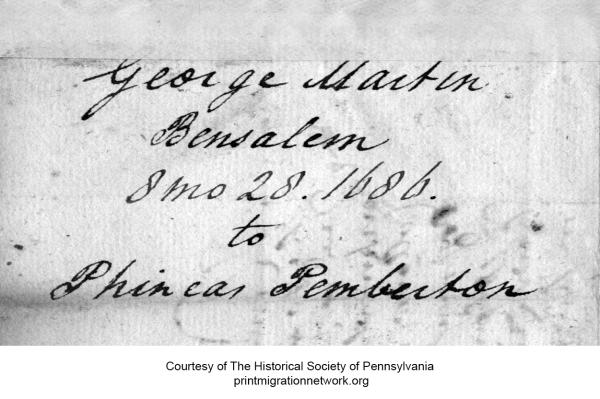 George Martin
Bensalem
8 mo 28. 1686.
to
Phineas Pemberton
Courtesy of The Historical Society of Pennsylvania
printmigrationnetwork.org